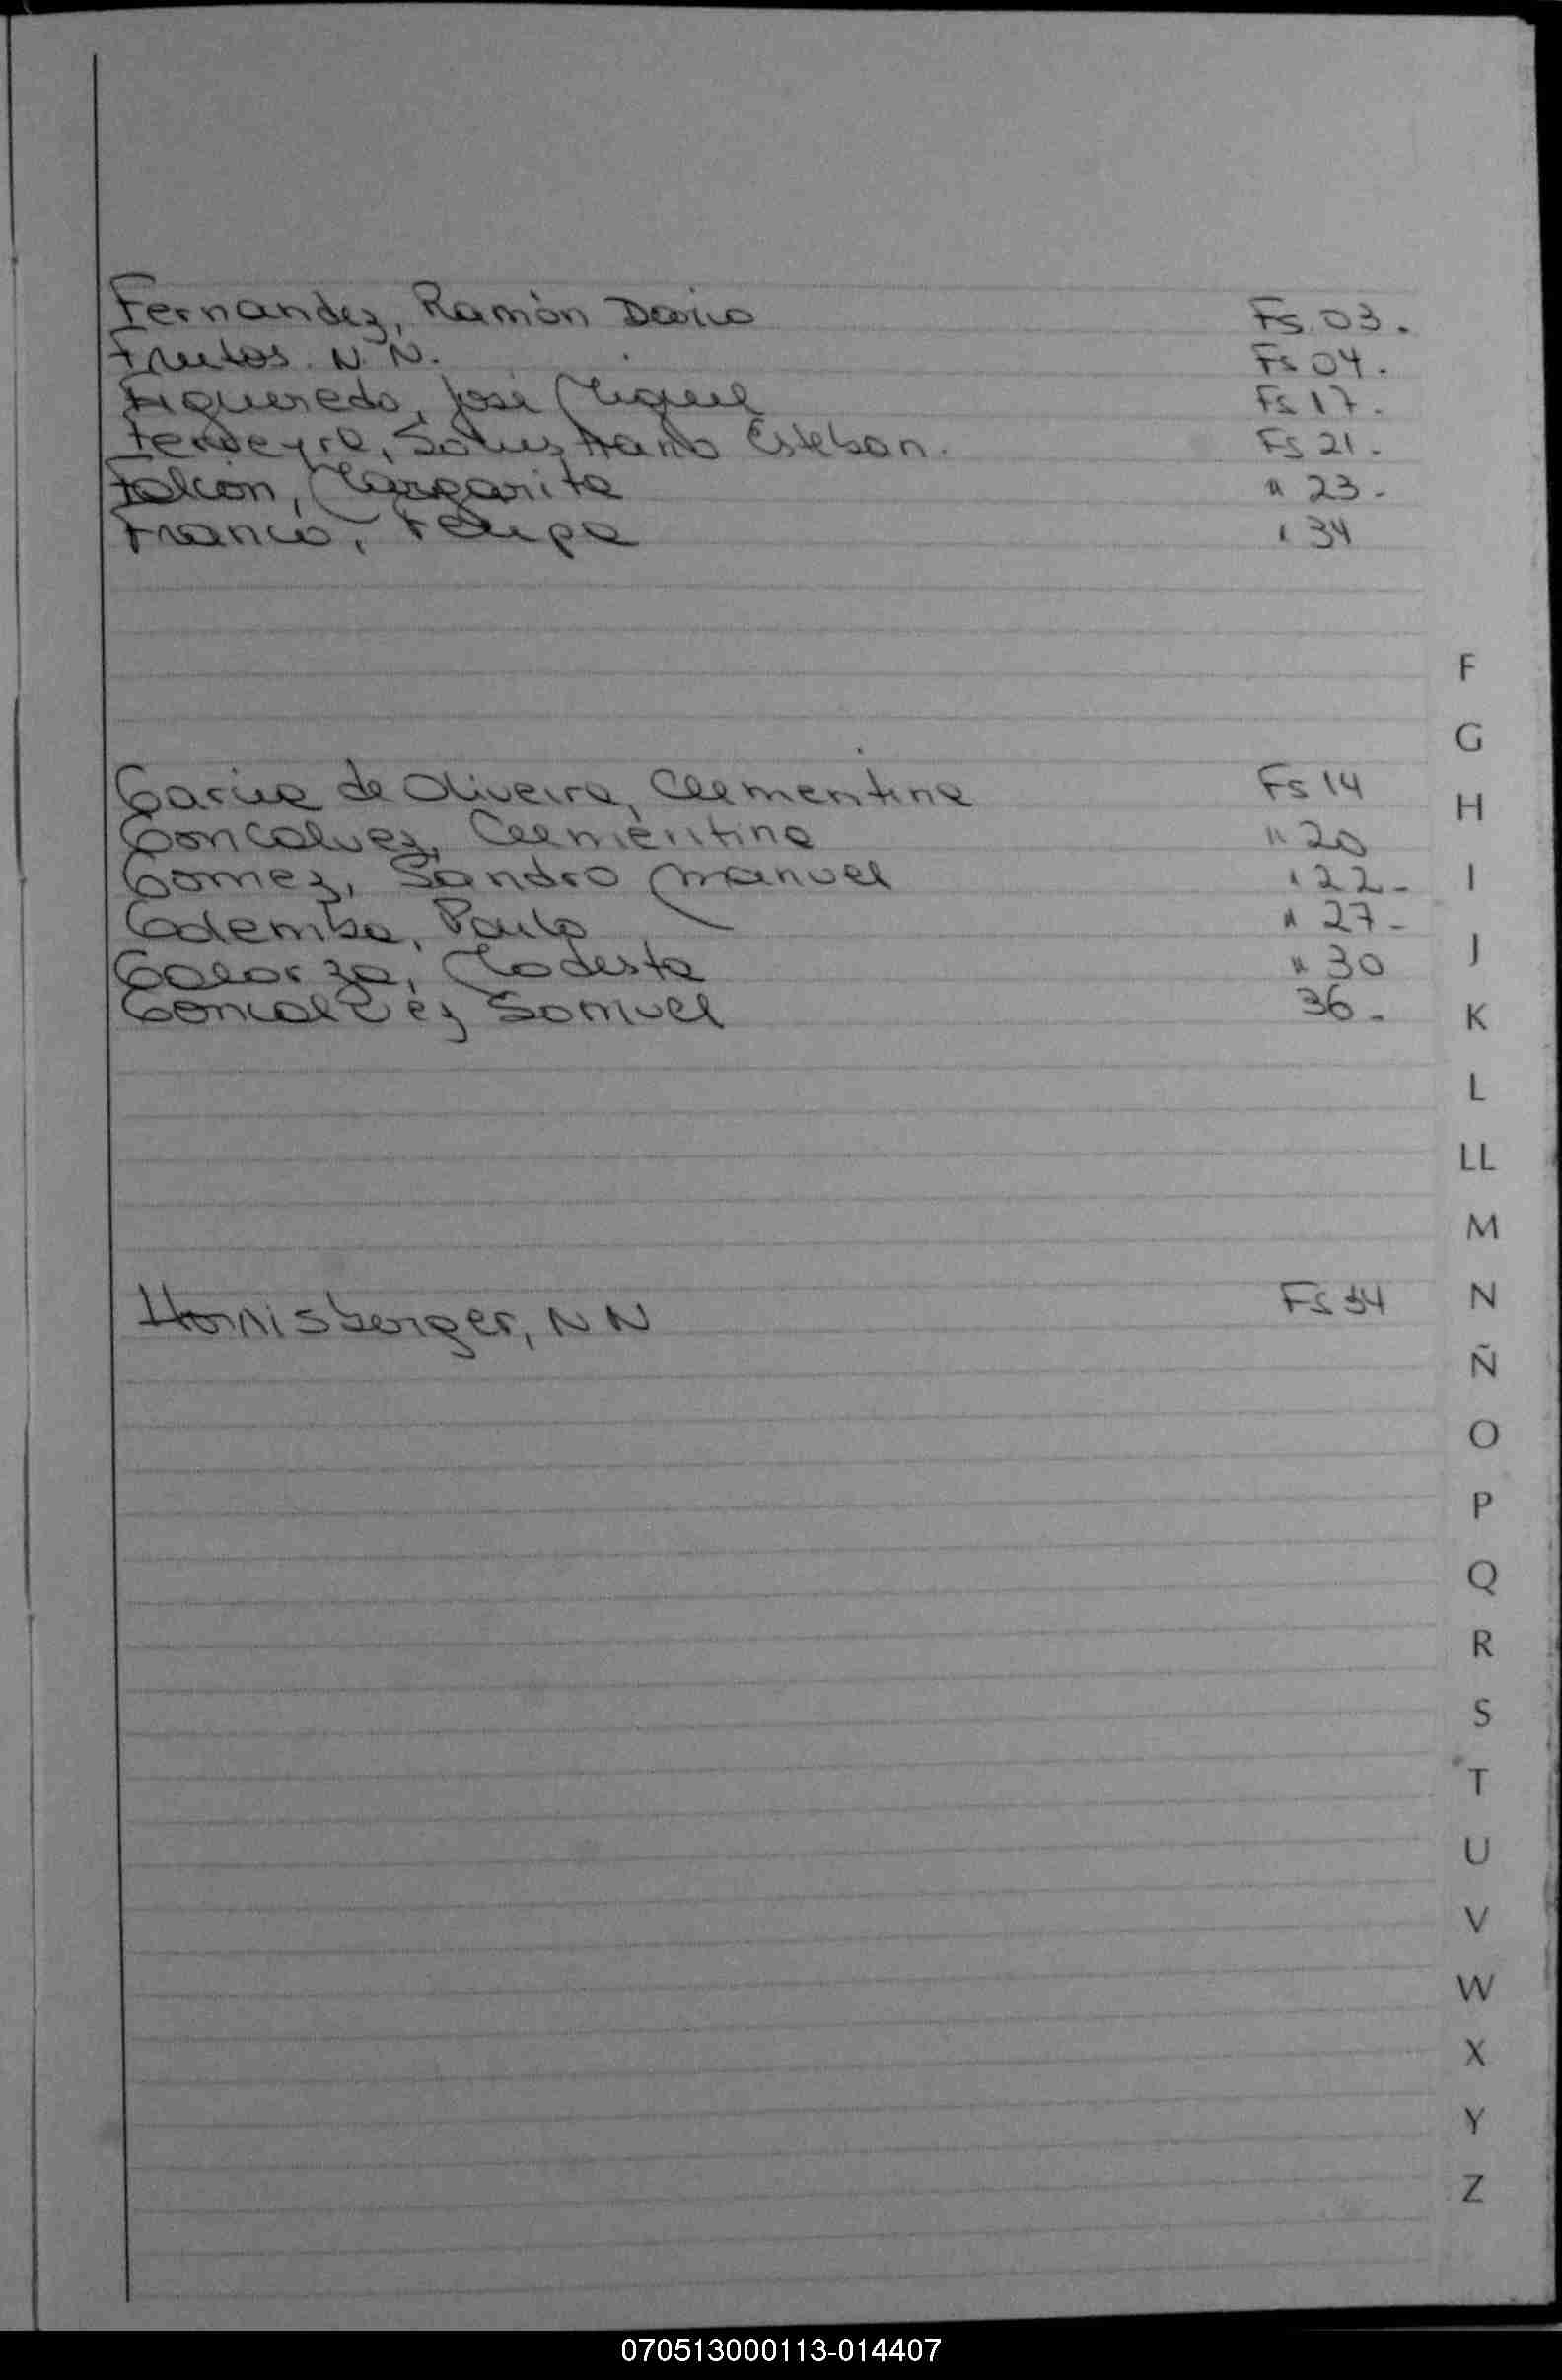 Fernandez, Ramón Dario Fs. 03.
Frutos. N. N. Fs 04.
Figueredo, José Miguel Fs 17.
Ferreyra, Esteban. Fs 21.
Falcon, Margarita " 23-
Franco, Felipa " 34
F
G
Garcia de Oliveira, Clementina Fs 14
H
Goncalvez, Clementina " 20
Gomez, Sandro Manuel " 22-
I
Galemba, Paulo " 27-
J
Galarza, Modesta " 30
Goncalvez Samuel 36-
K
L
LL
M
N
Hornisberger, N N Fs 34
Ñ
O
P
Q
R
S
T
U
V
W
X
Y
Z
070513000113-014407